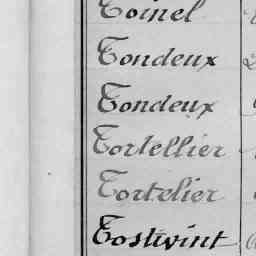 Toinel
Tondeux
Tondeux
Tortellier
Tortelier
Tostivint